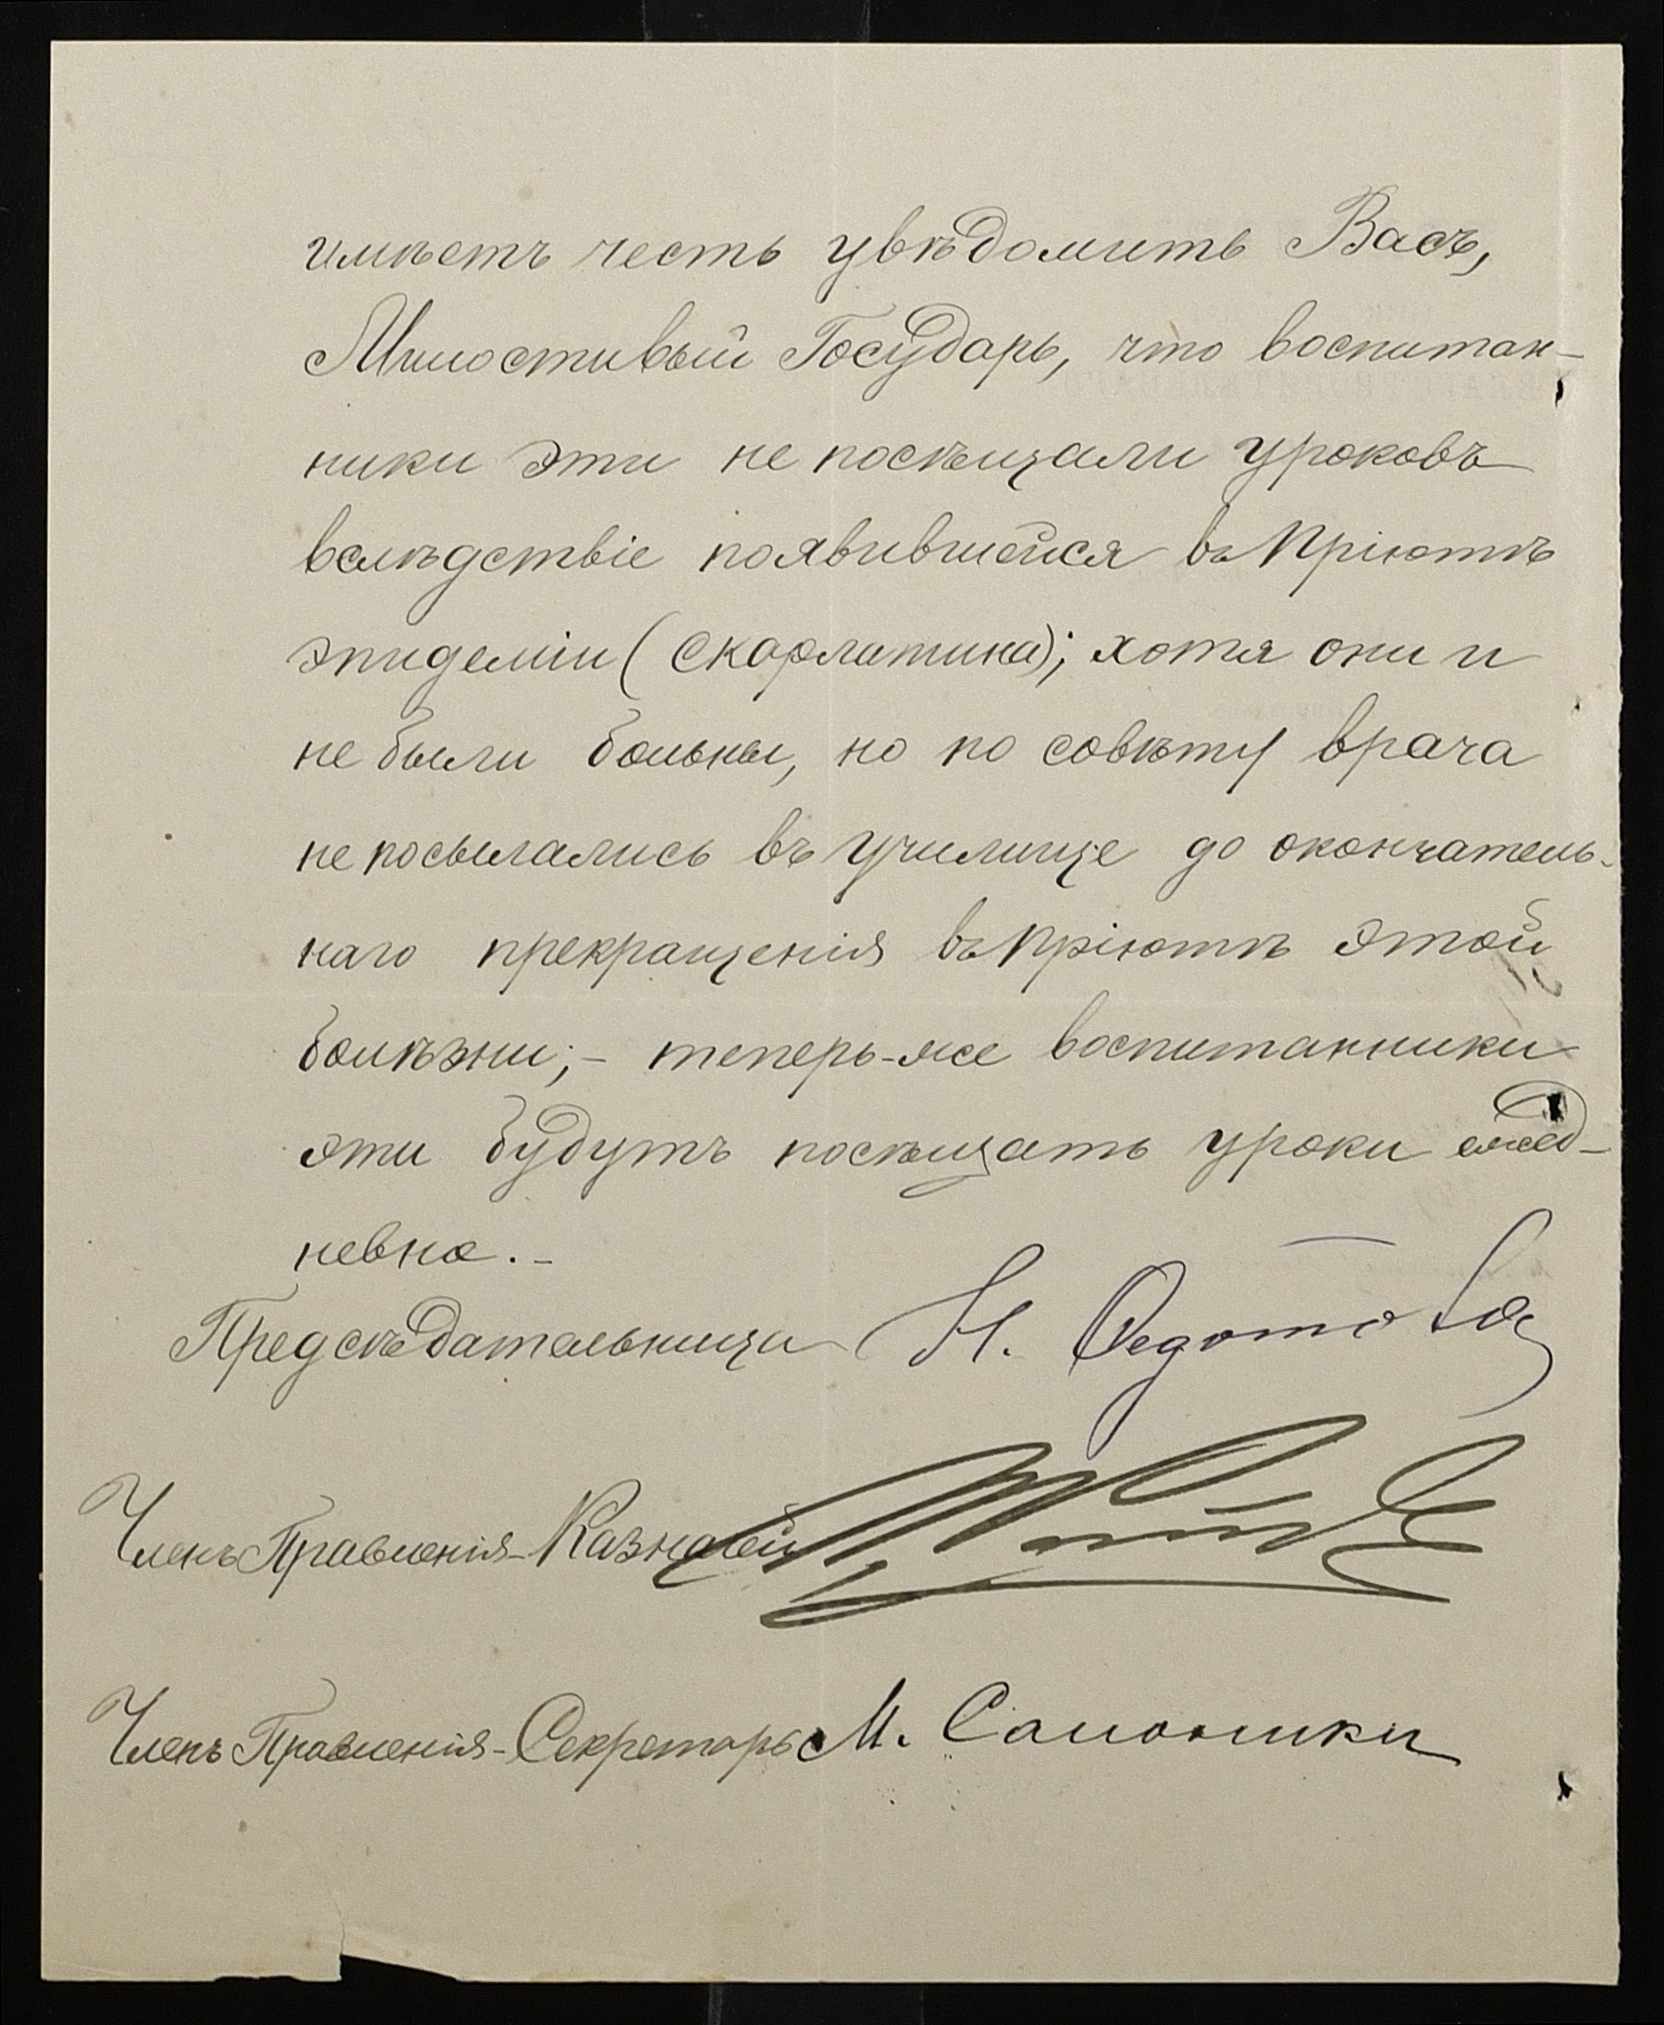 имѣетъ честь увѣдомить Васъ,
Милостивый Государь, что воспитан-
ники эти не посѣщали уроковъ
вслѣдствіе появившейся въ Пріютѣ
эпидеміи (скарлатина); хотя они и
не были больны, но по совѣту врача
не посылались въ Училище до окончатель-
наго прекращенія въ Пріютѣ этой
болѣзни;- теперь-же воспитанники
эти будутъ посѣщать уроки ежед-
невно.-
Предсѣдательница Н. Федотова
Членъ Правленія-Казначей
Членъ Правленія-Секретарь М.